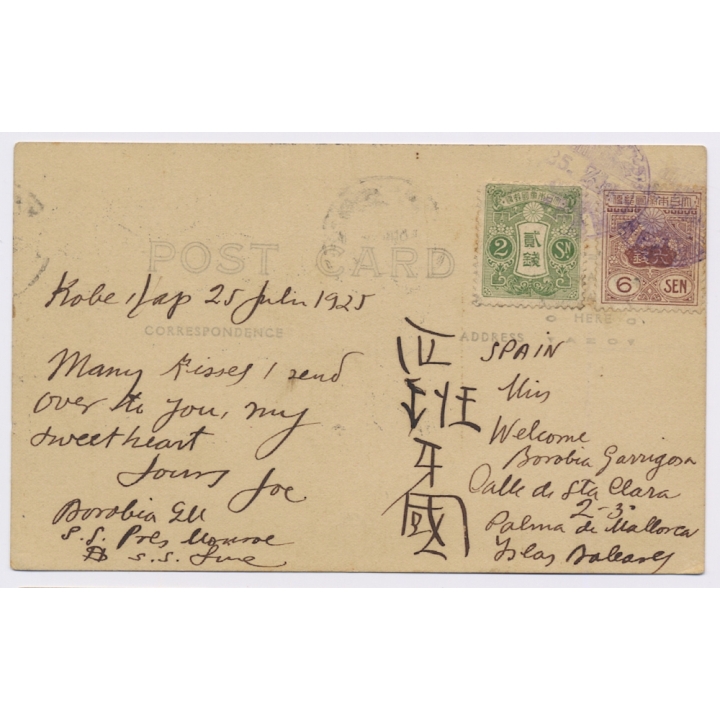 POST CARD
CORRESPONDENCE
ADDRESS
HERE
2 貳錢 Sn.
6 SEN
Kobe Jap 25 Julio 1925
Many Kisses I send
over to you, my
sweetheart
Yours Joe
Borobia GM
S.S. Pres Monroe
S.S. Line
牙
國
SPAIN
Miss
Welcome
Borobia Garrigosa
Calle de Sta Clara
2-3º
Palma de Mallorca
Islas Baleares